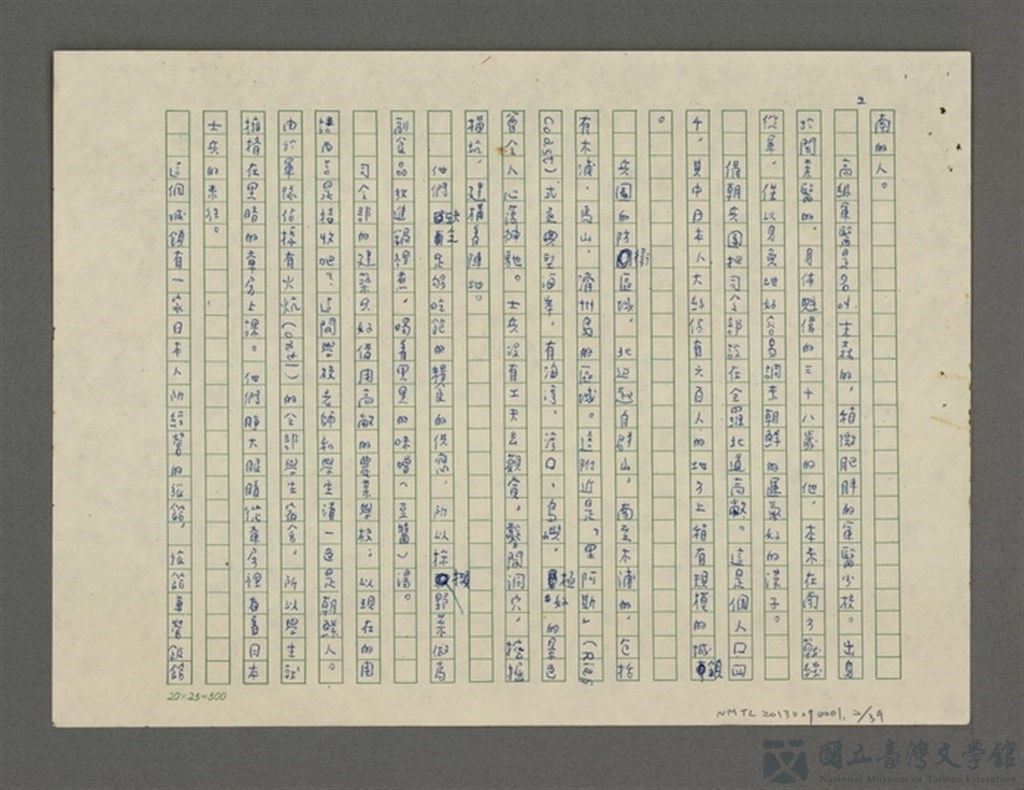 2
南的人。
高級軍醫是名叫士森的,稍微肥胖的軍醫少校。出身
於開業醫的,身体魁偉的三十八歲的他,本來在南方戰線
從軍,但以身免地好容易調來朝鮮的運氣好的漢子。
偕朝兵團把司令部設在全羅北道高敞。這是個人口四
千,其中日本人大約佔有六百人的地方上稍有規模的城鎮
。
兵團的防衛區域,北邊起自群山,南至木浦的,包括
有木浦、馬山、濟州島的區域。這附近是「里阿斯」(Rias
Coast)式典型海岸,有海灣、港口、島嶼,極好的景色
會令人心蕩神馳。士兵沒有工夫去觀賞,鑿開洞穴,挖掘
横坑,建構着陣地。
他們缺乏足够吃飽的糧食的供應,所以採擷野菜做為
副食品放進鍋裡煮,喝着黑黑的味噌(豆醬)湯。
司令部的建築只好借用高敞的農業學校;以現在的用
語而言是接收吧?這間學校老師和學生清一色是朝鮮人。
由於軍隊佔據有火炕(Ondol)的全部學生宿舍,所以學生就
擁擠在黑暗的章舍上課。他們睜大眼睛從章舍裡看着日本
士兵的來往。
這個城鎮有一家日本人所經營的旅館,旅館專營飯館
20×25=500
NMTL 20130090001, 2/39
國立臺灣文學館
National Museum of Taiwan Literature